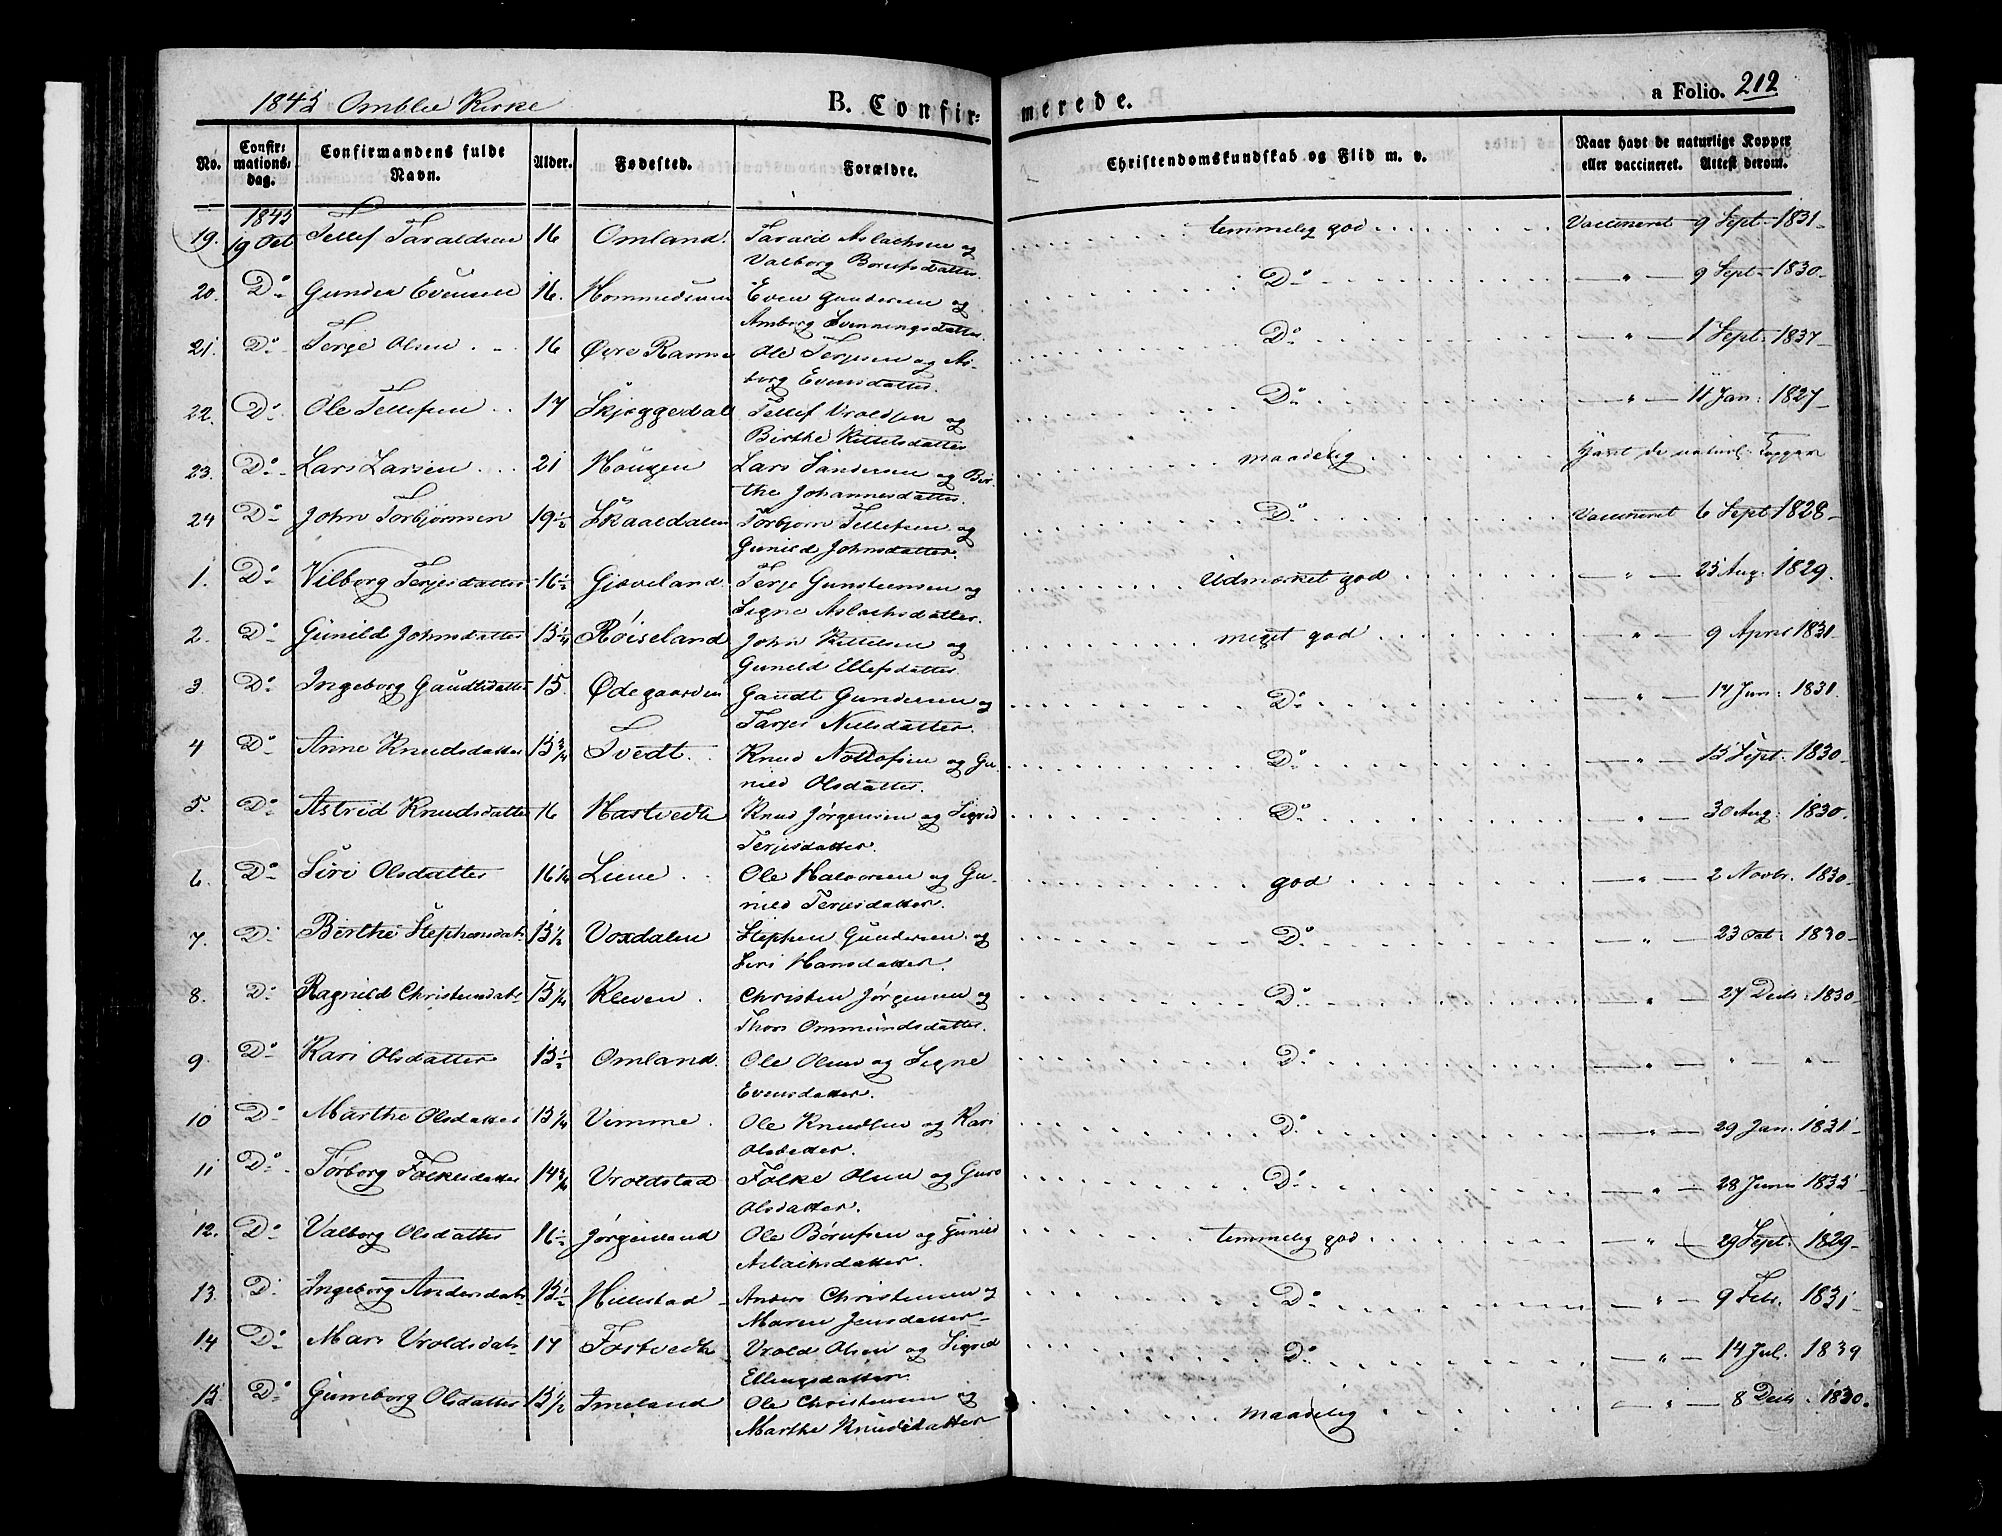 1845 Omblie Kirke B. Confirmerede. a Folio. 212
No. Confirmationsdag. Confirmandens fulde Navn. Alder. Fødested. Forældre. Christendomskundskab og Flid m. v. Naar havt de naturlige Kopper eller vaccineret. Attest derom.
1845
19. 19 Oct Tellef Taraldsen 16 Omland. Tarald Aslachsen og temmelig god Vaccineret 9 Sept. 1831
Valborg Borufsdatter.
20. Do Gunder Evensen 16. Hommedween Even Gundersen og Do " 9 Sept. 1830
Amborg Svenningsdatter.
21. Do Terje Olsen 16 Øvre Ramse Ole Terjesen og As- Do " 1 Sept. 1837
borg Evensdatter.
22. Do Ole Tellefsen 17 Skjeggedal Tellef Vroldsen og Do " 11 Jan: 1827
Birthe Kittelsdatter
23. Do Lars Larsen 21 Hougen Lars Sandersen og Bir- maadelig Havt de naturl. Kopper
the Johannesdatter.
24 Do John Torbjørnsen 19 1/2 Skaaldalen Torbjørn Tellefsen og Do Vaccineret 6 Sept 1828
Gunild Johnsdatter.
1. Do Vilborg Terjesdatter 16 1/2 Gjøveland Terje Gunsteensen og Udmærket god " 25 Aug. 1829.
Signe Aslachsdatter.
2. Do Gunild Johnsdatter 15 1/4 Røiseland John Kittelsen og meget god " 9 April 1831
Gunild Ellefsdatter.
3 Do Ingeborg Gaudtsdatter 15. Ødegaarden Gaudt Gundersen og Do " 17 Jun: 1831.
Tarjer Nilsdatter.
4 Do Anne Knudsdatter 15 3/4 Tvedt. Knud Nottofsen og Gu- Do " 15 Sept. 1830
nild Olsdatter.
5. Do Astrid Knudsdatter 16 Hartvedt Knud Jørgensen og Sigrid Do " 30 Aug. 1830.
Terjesdatter.
6. Do Siri Olsdatter 16 1/4 Liene Ole Halvorsen og Gu- god " 2 Novbr. 1830
nild Terjesdatter.
7. Do Birthe Stephensdatr 15 1/2 Voxdalen Stephen Gundersen og Do " 23 Oct. 1830
Siri Hansdatter.
8. Do Ragnild Christensdatr 15 1/4 Kleven Christen Jørgensen og Do " 27 Decbr. 1830
Thore Ommundsdatter.
9. Do Kari Olsdatter 15 1/2 Omland. Ole Olsen og Signe Do " " "
Evensdatter.
10 Do Marthe Olsdatter 15 1/4 Vimme Ole Knudsen og Kari Do " 29 Jan. 1831
Olsdatter.
11 Do Torborg Folkesdatter 14 3/4 Vroldstad Folke Olsen og Guro Do " 28 Juni 1835
Olsdatter.
12. Do Valborg Olsdatter 16 1/2 Jørgenland Ole Børufsen og Gunild temmelig god " 29 Sept. 1829
Aslachsdatter.
13. Do Ingeborg Andersdatr 15 1/2 Hillestad Anders Christensen og Do " 9 Febr. 1831
Maren Jensdatter
14. Do Mari Vroldsdatr 17 Tostvedt Vrold Olsen og Sigrid Do " 14 Jul. 1839
Ellingsdatter
15. Do Gunneborg Olsdatter 15 1/2 Imeland Ole Christensen og maadelig " 8 Decbr. 1830.
Marthe Knudsdatter